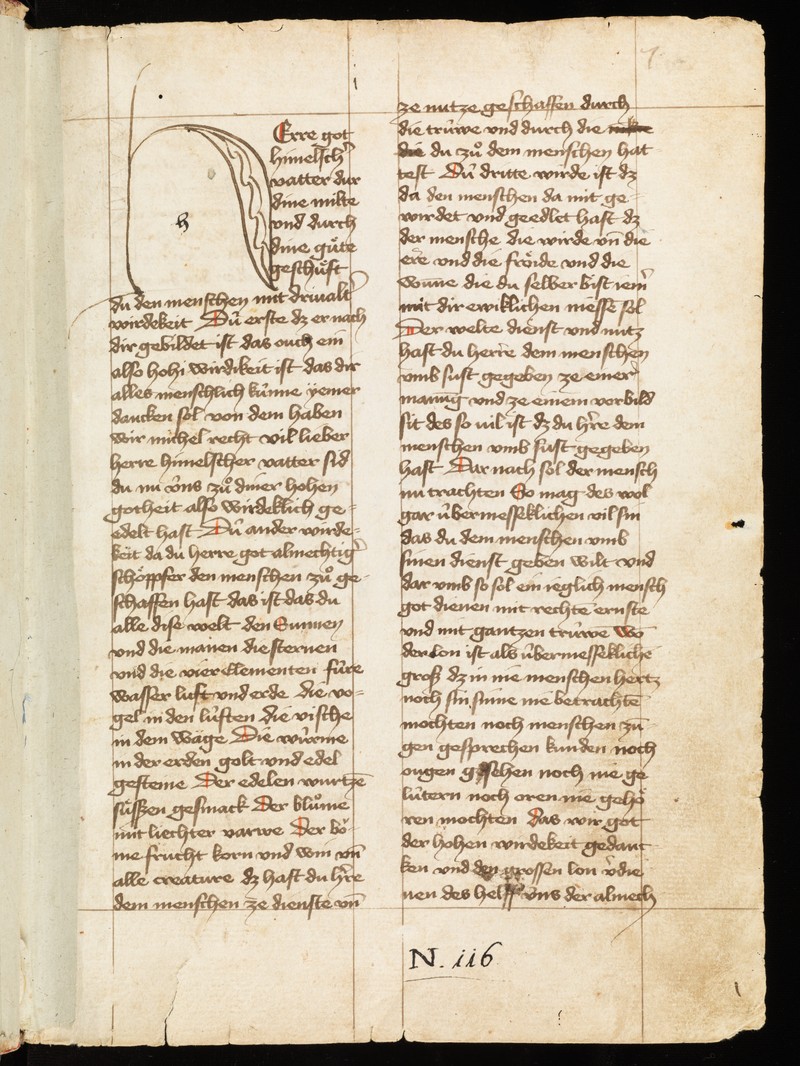 h
Erre got
himelsch̄
vatter dur
dine milte
vnd durch
dine guͤte
geschuͤff
du den menschen mit drivalt̄
wirdekeit Dū erste dz er nach
dir gebildet ist das ouch ein
also hohi wirdikeit ist das dir
alles menschlich kúnne yemer
dancken sol von dem haben
wir michel recht vil lieber
herre himelscher vatter sid
du nu v́ns zuͦ diner hohen
gotheit also wirdeklich ge-
edelt hast Dú ander wirde-
keit da du herre got almechtiḡ
schoͤppfer den menschen zuͦ ge-
schaffen hast das ist das du
alle dise welt den Sunnen
vnd die manen die sternen
vnd die vier Ellementen fúre
wasser luft vnd erde die vo-
gel in den lúften die vische
in dem wage Die wúrme
in der erden golt vnd edel
gesteine Der edelen wurtzē
suͤssen gesmack Der bluͦme
mit liechter varwe Der boͮ-
me frucht korn vnd win vn̄
alle creature dz hast du h̄re
dem menschen ze dienste vn̄
ze nutze geschaffen durch
die trúwe vnd durch die
du zuͦ dem menschen hat
test Dú dritte wirde ist dz
da den menschen da mit ge-
wirdet vnd geedlet hast dz
der mensche die wirde vn̄ die
ere vnd die froͤide vnd die
wonne die du selber bist iem̄
mit dir ewiklichen niesse sol
Der welte dienst vnd nutz
hast du herre dem menschen
vmb sust gegeben ze einer
manūg vnd ze einem vorbild
sit des so vil ist dz du h̄re dem
menschen vmb sust gegeben
hast Dar nach sol der mensch
nu trachten So mag des wol
gar v́bermesseklichen vil sin
das du dem menschen vmb
sinen dienst geben wilt vnd
dar vmb so sol ein ieglich mensch
got dienen mit rechte ernste
vnd mit gantzen trúwē Wō
der lon ist als v́bermesseklichē
groß dz in nie menschen hertz
noch sin sinne nie betrachtē
mochten noch menschen zū
gen gesprechen kunden noch
ougen gesehen noch nie ge
lútern noch oren nie gehoͤ
ren mochten Das wir got
der hohen wirdekeit gedanc
ken vnd den grossen lon v̄die
nen des helff v́ns der almech
N. 116